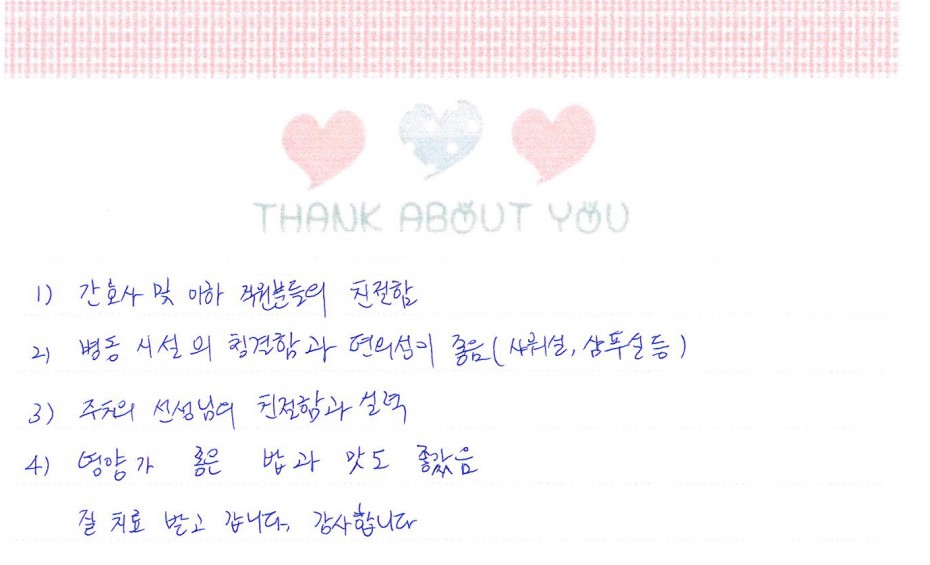 THANK ABOUT YOU
1) 간호사 및 이하 직원분들의 친절함
2) 병동 시설의 청결함과 편의성이 좋음(샤워실, 샴푸실 등)
3) 주치의 선생님의 친절함과 실력
4) 영양가 높은 밥과 맛도 좋았음
잘 치료 받고 갑니다, 감사합니다